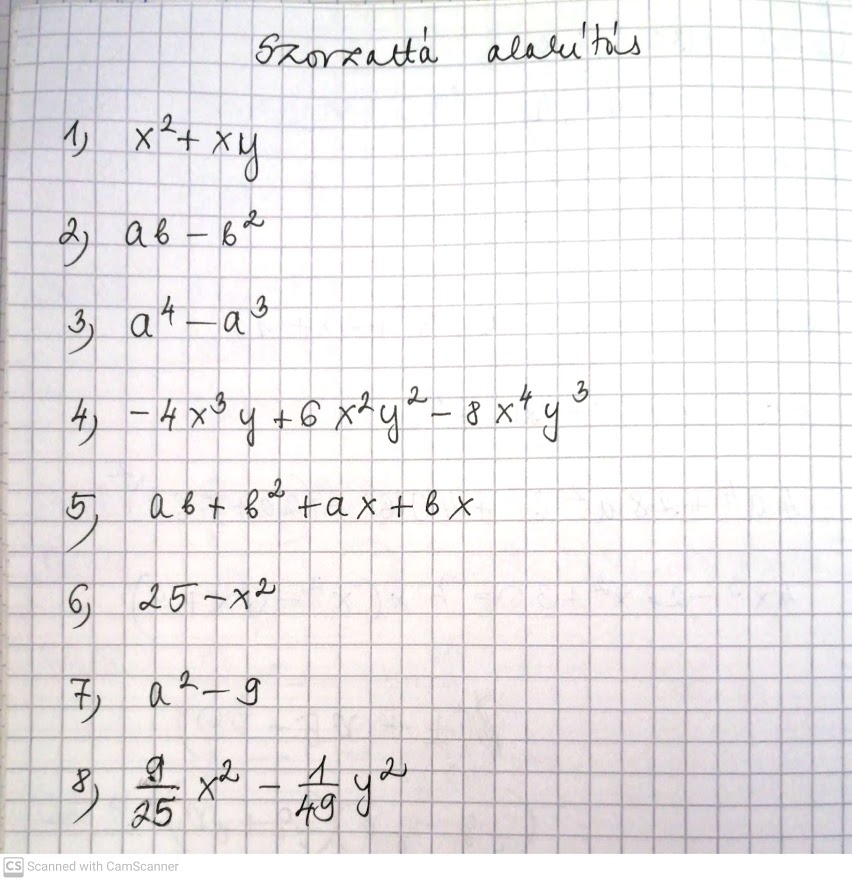 Szorzattá alakítás
1) x² + xy
2) ab - b²
3) a⁴ - a³
4) -4x³y + 6x²y² - 8x⁴y³
5) ab + b² + ax + bx
6) 25 - x²
7) a² - 9
8) 9/25 x² - 1/49 y²
CS Scanned with CamScanner